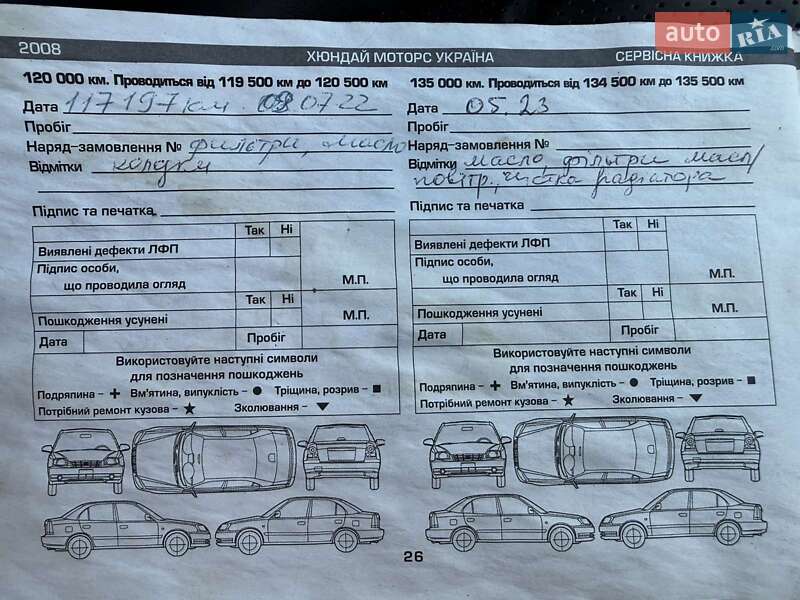 auto RIA .com
2008 ХЮНДАЙ МОТОРС УКРАЇНА СЕРВІСНА КНИЖКА
120 000 км. Проводиться від 119 500 км до 120 500 км
Дата 117197 км. 08 07 22
Пробіг
Наряд-замовлення № фильтри, масло
Відмітки колодки
Підпис та печатка
Так Ні
Виявлені дефекти ЛФП
Підпис особи,
що проводила огляд М.П.
Так Ні
Пошкодження усунені М.П.
Дата Пробіг
Використовуйте наступні символи
для позначення пошкоджень
Подряпина – Вм'ятина, випуклість – Тріщина, розрив –
Потрібний ремонт кузова – Зколювання –
135 000 км. Проводиться від 134 500 км до 135 500 км
Дата 05. 23
Пробіг
Наряд-замовлення №
Відмітки масло, фільтри масл/
повітр., чистка радіатора
Підпис та печатка
Так Ні
Виявлені дефекти ЛФП
Підпис особи,
що проводила огляд М.П.
Так Ні
Пошкодження усунені М.П.
Дата Пробіг
Використовуйте наступні символи
для позначення пошкоджень
Подряпина – Вм'ятина, випуклість – Тріщина, розрив –
Потрібний ремонт кузова – Зколювання –
26